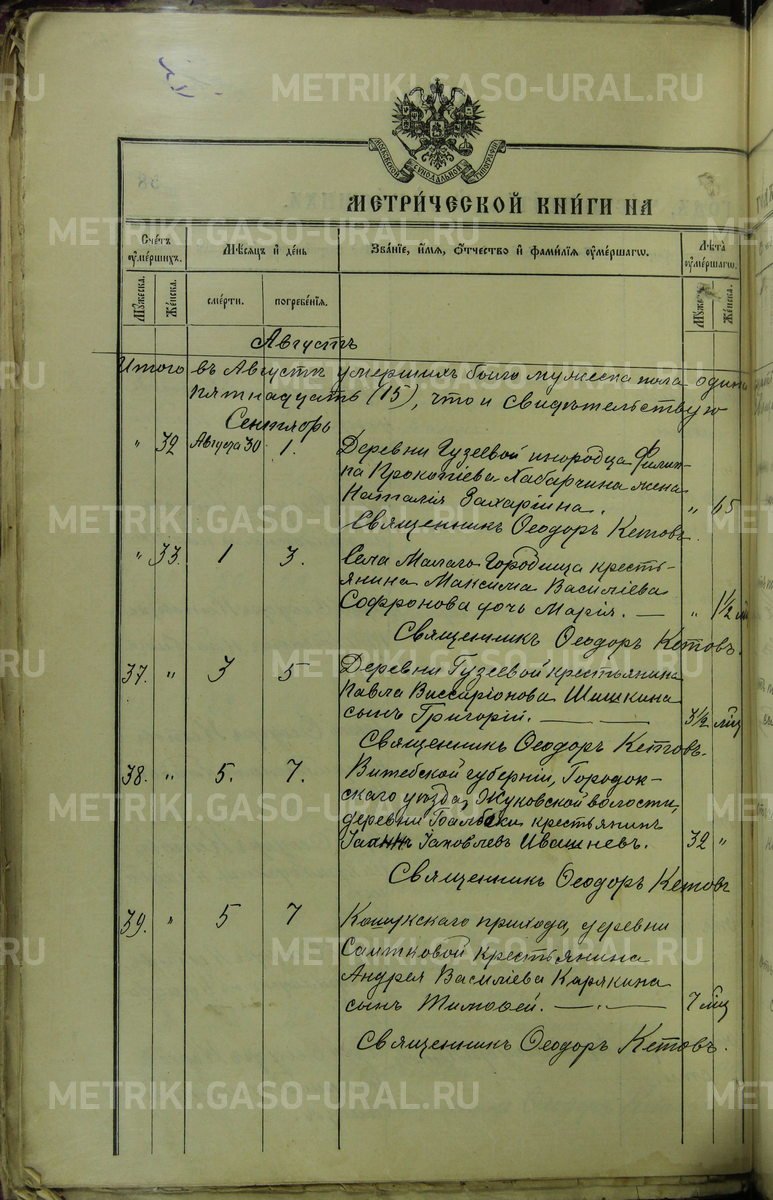 МОСКОВСКОЙ СѴНОДАЛЬНОЙ ТИПОГРАФІИ
МЕТРИ́ЧЕСКОЙ КНИ́ГИ НА
Сче́тъ ᲂу҆ме́ршихъ.
Мѣ́сяцъ и҆ де́нь
Зва́нїе, и҆́мя, ѻ҆́тчество и҆ фами́лїя ᲂу҆ме́ршагѡ.
Лѣ́та ᲂу҆ме́ршагѡ.
Мꙋ́жеска.
Же́нска.
сме́рти.
погребе́нїя.
Мꙋ́жеска.
Же́нска.
Августъ
Итого въ Августѣ умершихъ было мужеска пола один
пятнадцать (15), что и свидѣтельствую
Сентябрь
" 32 Августа 30 1. Деревни Гузеевой инородца Филип-
па Прокопіева Хабарчина жена
Наталія Захаріина. " 65
Священникъ Ѳеодоръ Кетовъ.
" 33. 1 3. села Малаго Городища кресть-
янина Максима Василіева
Софронова дочь Марія. — " 1½ м
Священникъ Ѳеодоръ Кетовъ.
37. " 3 5 Деревни Гузеевой крестьянина
Павла Виссаріонова Шишкина
сынъ Григорій. — — 3½ мѣц
Священникъ Ѳеодоръ Кетовъ.
38. " 5. 7. Витебской губерніи, Городок-
скаго уѣзда, Жуковской волости,
деревни крестьянинъ
Іаковлевъ Ивашневъ. 32 "
Священникъ Ѳеодоръ Кетовъ
39. " 5 7 Кошукскаго прихода, деревни
Саитковой крестьянина
Андрея Василіева Карякина
сынъ Тимоѳей. — " — 7 мц
Священникъ Ѳеодоръ Кетовъ.
METRIKI.GASO-URAL.RU